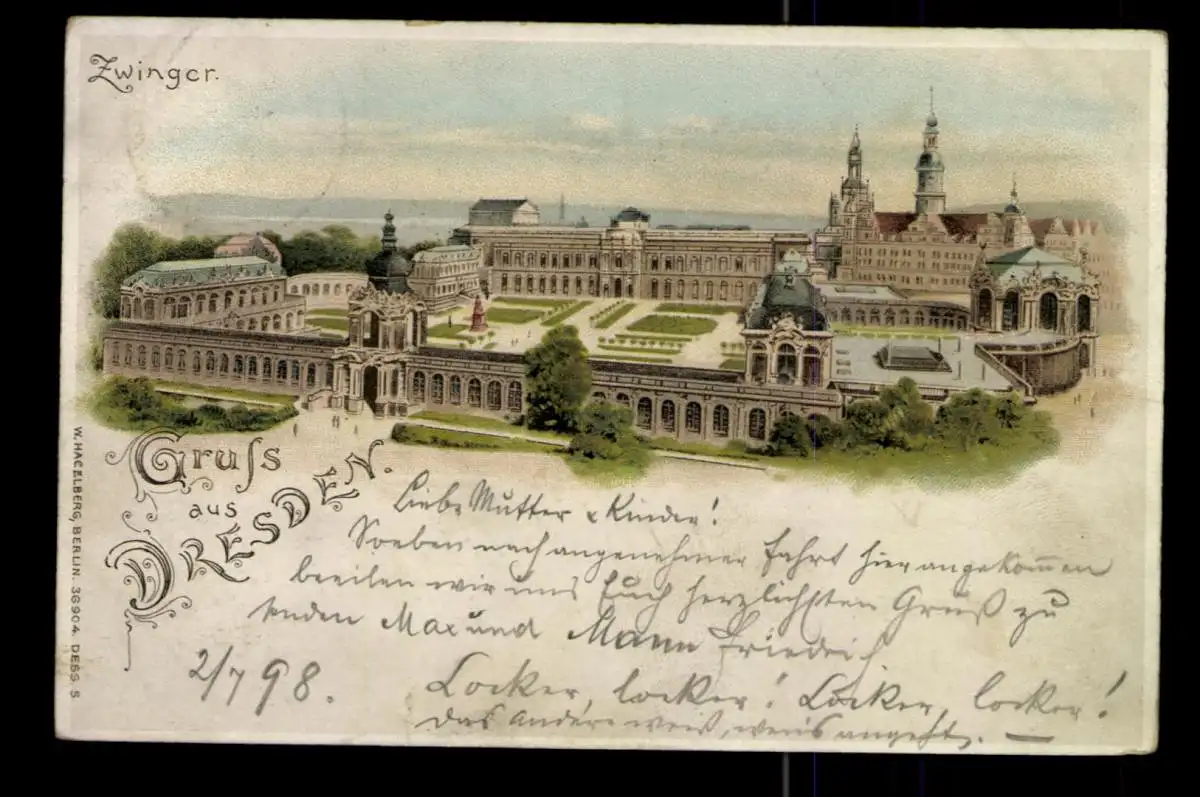 Zwinger.
Gruſs
aus
DRESDEN.
W. HAGELBERG, BERLIN. 36904. DESS. S
Liebe Mutter & Kinder!
Soeben nach angenehmer Fahrt hier angekom̄en
beeilen wir uns Euch herzlichsten Gruß zu
senden Max und Mann Friedrich
2/7 98.
Locker, locker! Locker, locker!
Das Andere weiß, wen's angeht. —